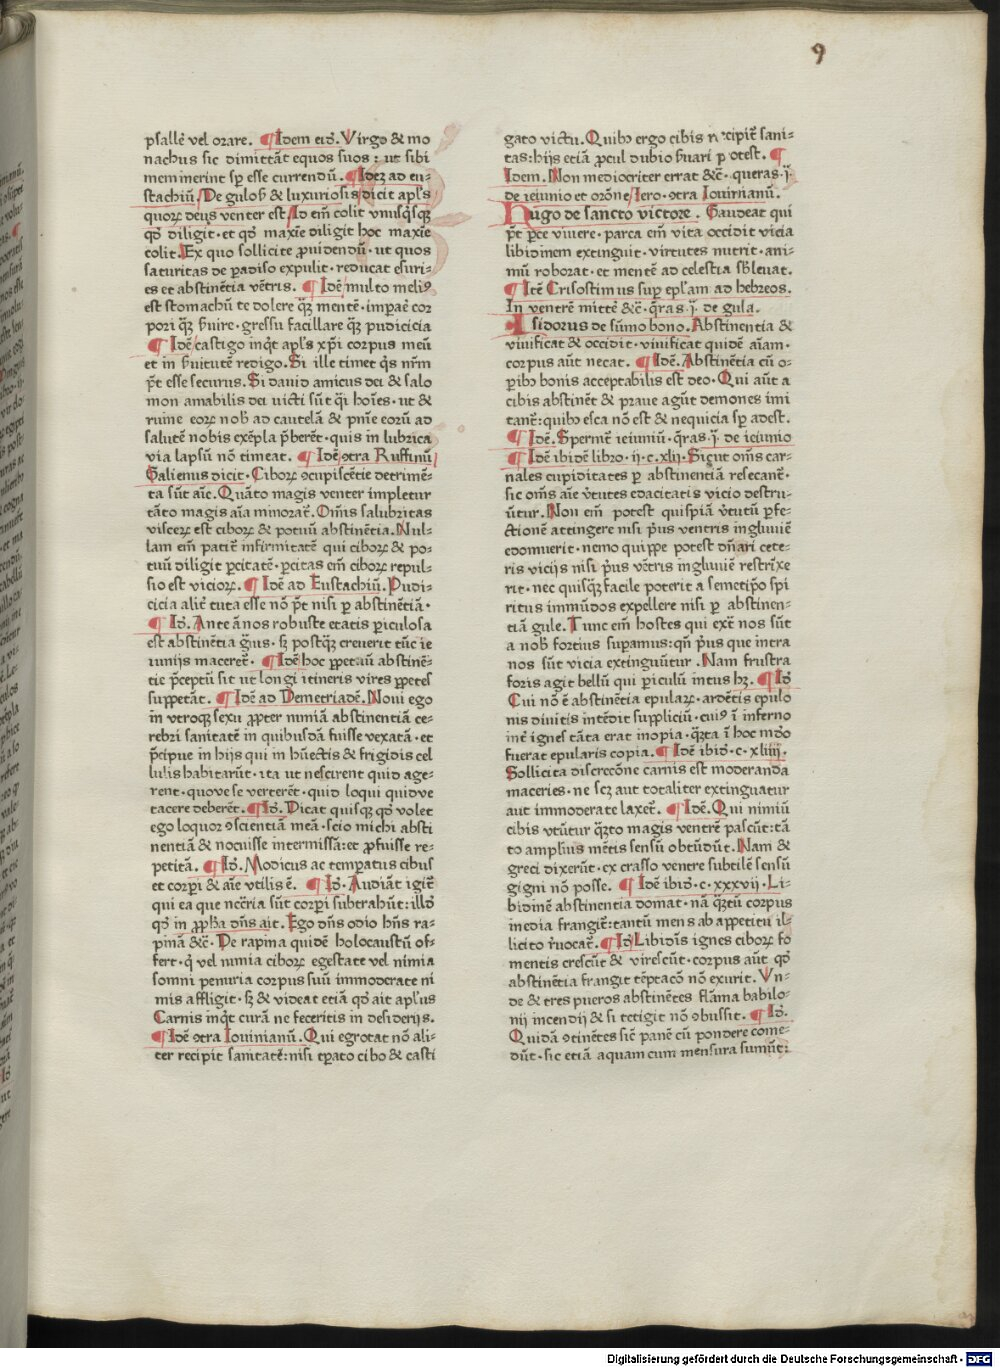 9
psallẽ vel orare. ¶ Idem eiđ. Virgo & mo
nachus sic dimittãt equos suos : ut sibi
meminerint sp̱ esse currendũ. ¶ Idez ad eu-
stachiũ. De gulosꝭ & luxuriosis dicit apl's
quoꝝ deus venter est. Id em̃ colit vnusq̃sq̃
qđ diligit · et qđ maxĩe diligit hoc maxĩe
colit. Ex quo sollicite ꝓuidendũ · ut quos
saturitas de ꝑadiso expulit · reducat esuri-
es et abstinẽtia vẽtris. ¶ Idẽ multo meliꝰ
est stomachũ te dolere q̃ʒ mentẽ · impãe cor
pori q̃ʒ ẜuire · gressu facillare q̃ʒ pudicicia
¶ Idẽ castigo inq̇t apl's xp̃i corpus meũ
et in ẜuitutẽ redigo. Si ille timet q̇s nr̃m
pt̃ esse securus. Si dauid amicus dei & salo
mon amabilis dei victi sũt q̇i hoĩes · ut &
ruine eoꝝ nobꝭ ad cautelã & pñie eoꝛũ ad
salutẽ nobis exẽpla p̃berẽt · quis in lubrica
via lapsũ nõ timeat. ¶ Idẽ ꝯtra Ruffinũ
Galienus dicit · Ciboꝝ ꝯcupiscẽtie detrimẽ-
ta sũt aĩe. Quãto magis venter impletur
tãto magis aĩa minorat᷑. Om̃is salubritas
visceꝝ est ciboꝝ & potuũ abstinẽtia. Nul-
lam em̃ patit᷑ infirmitatẽ qui ciboꝝ & po-
tuũ diligit ꝑcitatẽ · ꝑcitas em̃ ciboꝝ repul-
sio est vicioꝝ. ¶ Idẽ ad Eustachiũ. Pudi-
cicia alit᷑ tuta esse nõ pt̃ nisi ꝑ abstinẽtiã ·
¶ Iđ. Ante ãnos robuste etatis ꝑiculosa
est abstinẽtia g̃uis · sꝫ postq̃ʒ creuerit tũc ie
iunijs maceret᷑. ¶ Idẽ hoc ꝑpetuũ abstinẽ-
tie p̃ceptũ sit ut longi itineris vires ꝑpetes
suppetãt. ¶ Idẽ ad Demetriadẽ. Noui ego
in vtroqʒ sexu ꝓpter nimiã abstinentiã ce-
rebri sanitatẽ in quibusdã fuisse vexatã · et
p̃cipue in hijs qui in hũectis & frigidis cel
lulis habitarũt · ita ut nescirent quid age-
rent · quo ve se verterẽt · quid loqui quid ve
tacere deberẽt. ¶ Iđ. Dicat quisqʒ qđ volet
ego loquor ꝯscientiã meã · scio michi absti
nentiã & nocuisse intermissã: et ꝓfuisse re-
petitã. ¶ Iđ. Modicus ac temꝑatus cibus
et corꝑi & aĩe vtilis ẽ. ¶ Iđ. Audiãt igit᷑
qui ea que nc̃cria sũt corꝑi subtrahũt: illđ
qđ in ꝓph̃a dñs ait. Ego dñs odio hñs ra-
pinã &c̃ · De rapina quidẽ holocaustũ of-
fert · q̇ vel nimia ciboꝝ egestate vel nimia
somni penuria corpus suũ immoderate ni
mis affligit · sꝫ & videat etiã qđ ait apl'us
Carnis inq̇t curã ne feceritis in desiderijs.
¶ Idẽ ꝯtra Iouinianũ. Qui egrotat nõ ali-
ter recipit sanitatẽ: nisi tꝑato cibo & casti
gato victu. Quibꝭ ergo cibis recipit᷑ sani-
tas: hijs etiã ꝓcul dubio ẜuari potest. ¶
Idem. Non mediocriter errat &c̃ · queras ·j̃·
de ieiunio et oroñe Iero · ꝯtra Iouinianũ.
Hugo de sancto victore. Gaudeat qui
pt̃ ꝑce viuere · parca em̃ vita occidit vicia
libidinem extinguit · virtutes nutrit · ani-
mũ roborat · et mentẽ ad celestia sb̃leuat.
¶ Itẽ Crisostimus suꝑ epl'am ad hebreos.
In ventrẽ mittẽ &c̃ · q̃ras ·j̃· de gula.
Isidorus de sũmo bono. Abstinentia &
viuificat & occidit · viuificat quidẽ aĩam ·
corpus aũt necat. ¶ Idẽ. Abstinẽtia cũ o-
ꝑibꝭ bonis acceptabilis est deo · Qui aũt a
cibis abstinẽt & praue agũt demones imi
tant᷑: quibꝭ esca nõ est & nequicia sp̱ adest.
¶ Idẽ. Spernit᷑ ieiuniũ · q̃ras ·j̃· de ieiunio
¶ Idẽ ibidẽ libro · ij · c · xlij · Sicut om̃s car-
nales cupiditates ꝑ abstinentiã resecant᷑ ·
sic om̃s aĩe v̓tutes edacitatis vicio destru-
ũtur. Non em̃ potest quispiã v̓tutũ ꝑfe-
ctionẽ attingere nisi p̓us ventris ingluuiẽ
edomuerit · nemo quippe potest dñari cete-
ris vicijs nisi p̓us vẽtris ingluuiẽ restrĩxe
rit · nec quisq̃ʒ facile poterit a semetip̃o spi
ritus immũdos expellere nisi ꝑ abstinen-
tiã gule. Tunc em̃ hostes quiext᷑ nos sũt
a nobꝭ fortius suꝑamus: qñ p̓us que intra
nos sũt vicia extinguũtur. Nam frustra
foris agit bellũ qui ꝑiculũ intus hꝫ. ¶ Iđ
Cui nõ ẽ abstinẽtia epulaꝝ · ardẽtis epulo
nis diuitis intẽdit suppliciũ · cuiꝰ ĩ inferno
int᷑ ignes tãta erat inopia · q̃ta ĩ hoc mđo
fuerat epularis copia. ¶ Idẽ ibiđ · c · xliiij ·
Sollicita discrecõne carnis est moderanda
maceries · ne scʒ aut totaliter extinguatur
aut immoderate laxet᷑. ¶ Idẽ. Qui nimiũ
cibis vtũtur q̃ʒto magis ventrẽ pascũt: tã
to amplius mẽtis sensũ obtũdũt. Nam &
greci dixerũt · ex crasso ventre subtilẽ sensũ
gigni nõ posse. ¶ Idẽ ibiđ · c · xxxvij · Li-
bidinẽ abstinentia domat · nã q̃ʒtũ corpus
inedia frangit᷑: tantũ mens ab appetitu il-
licito r̓uocat᷑. ¶ Iđ Libidĩs ignes ciboꝝ fo
mentis crescũt & virescũt · corpus aũt qđ
abstinẽtia frangit tẽptacõ nõ exurit. Vn-
de & tres pueros abstinẽtes flãma babilo-
nij incendij & si tetigit nõ ꝯbussit. ¶ Iđ.
Quidã ꝯtinẽtes sic̃ panẽ cũ pondere come-
dũt · sic etiã aquam cum mensura sumũt:
Digitalisierung gefördert durch die Deutsche Forschungsgemeinschaft - DFG